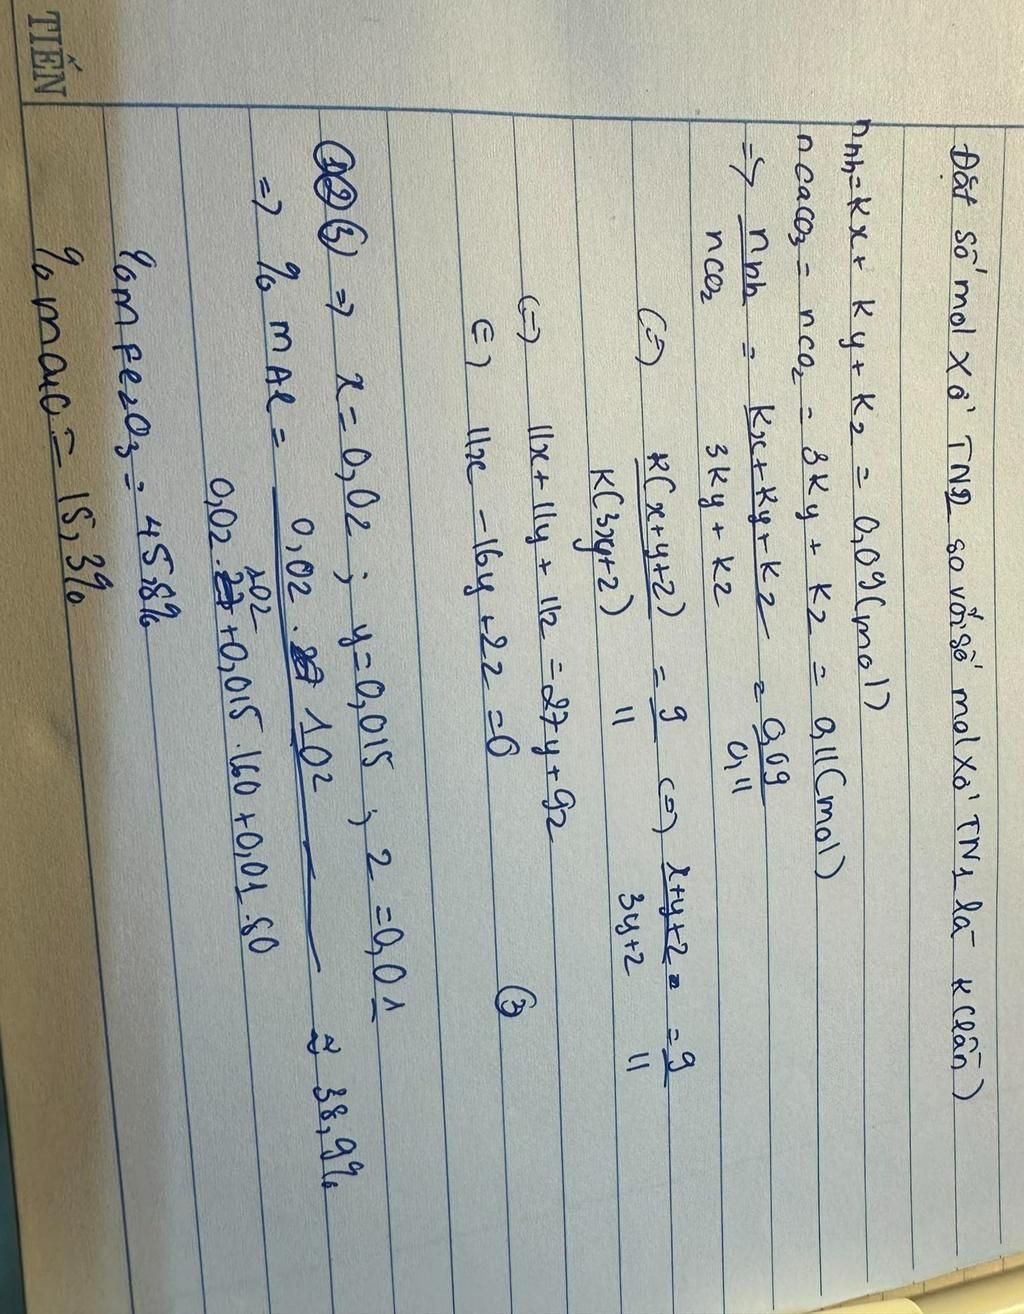 Đặt số mol X ở TN2 so với số mol X ở TN1 là k (lần)
nhh = kx + ky + kz = 0,09 (mol)
nCaCO3 = nCO2 = 3ky + kz = 0,11 (mol)
=> nhh / nCO2 = kx + ky + kz / 3ky + kz = 0,09 / 0,11
(=) k(x+y+z) / k(3y+z) = 9 / 11 (=) x+y+z / 3y+z = 9 / 11
(=) 11x + 11y + 11z = 27y + 9z
(=) 11x - 16y + 2z = 0 (3)
(1)(2)(3) => x = 0,02 ; y = 0,015 ; z = 0,01
=> % mAl = 0,02 . 102 / 0,02 . 102 + 0,015 . 160 + 0,01 . 80 ≈ 38,9%
% m Fe2O3 = 45,8%
% mCuO = 15,3%
TIẾN